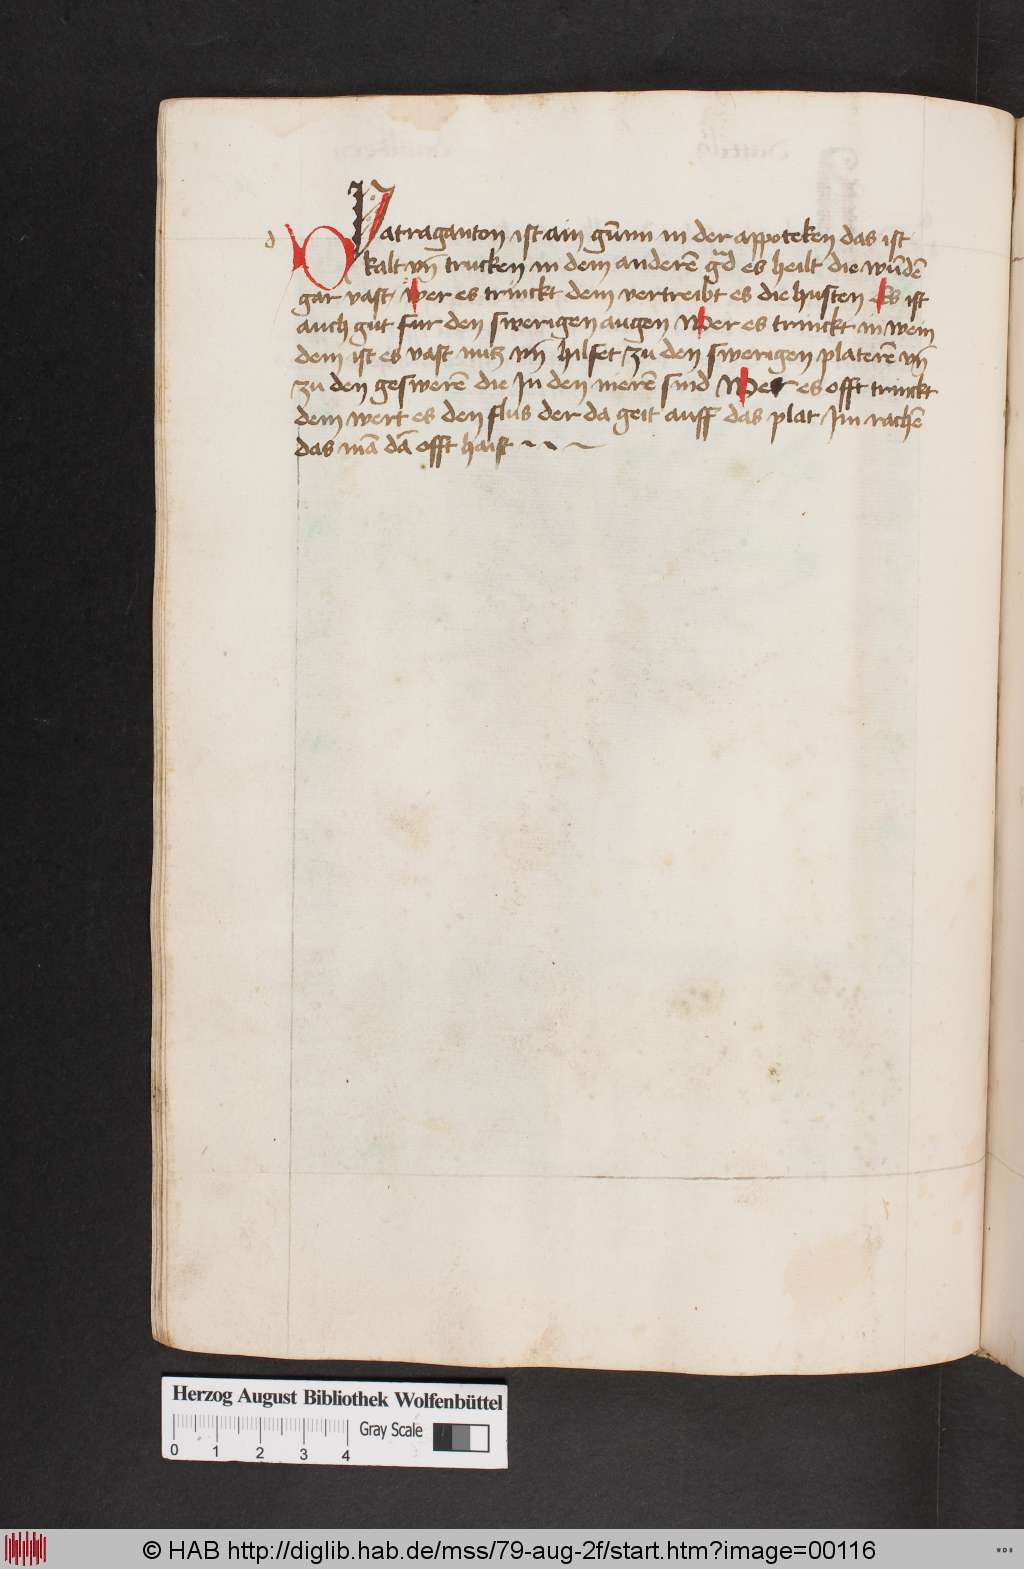 d
DPatraganton ist ain gu̅m̅ in der appoteken das ist
kalt vn̅ trucken in dem andere̅ gᵃd es heilt die wu̅de̅
gar vast / wer es trinckt dem vertreibt es die husten Es ist
auch gut fur den swerigen augen Wer es trinckt in wein
dem ist es vast nutz vn̅ hilfet zu den swerigen platere̅ vn̅
zu den geswere̅ die Jn den niere̅ sind Wer es offt trinckt
dem wert es den flus der da geit auff das plat Jm rache̅
das ma̅ da̅ offt haist ~ ~ ~
Herzog August Bibliothek Wolfenbüttel
Gray Scale
0 1 2 3 4
© HAB http://diglib.hab.de/mss/79-aug-2f/start.htm?image=00116